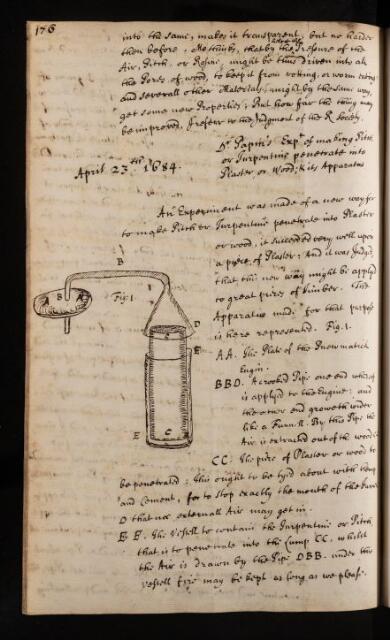 176
into the same, makes it transparent, but no harder
then before, Methinks, that by the Presure of the
Air, Pitch, or Rosine, might be thus driven into all
the Pores of wood, to keep it from roting, or worm eating
and severall other Materials, might by the same way,
get some new Properties; But how far the thing may
be improved, I refer to the Judgment of the R. Society.
Dr Papin's Expt of making Pitch
or Turpentine penetrate into
Plaster, or Wood; & its Apparatus
April 23th 1684.
An Experiment was made of a new way for
to make Pitch or Turpentine penetrate into Plaster
or wood, it succeeded very well upon
a piece of Plaster; And it was Judg'd,
that this new way might be applyd
to great pieces of Timber. The
Apparatus made for that purpose
is here represented. Fig. 1.
B
A B A
Fig: 1
D
C
E
E C
AA. The Plate of the Pneumatick
Engin.
BBD. A crooked Pipe one end whereof
is applyd to the Engine: and
the other end groweth wider
like a Funnell. By this Pipe the
Air is extracted out of the wood
CC. The piece of Plaster or wood to
be penetrated: this ought to be tyd about with
and Cement, for to stop exactly the mouth of the
D that noe externall Air may get in.
E E. The Vessell to contain the Turpentine or Pitch,
that is to penetrate into the Lump CC, whilst
the Air is drawn by the Pipe DBB. under this
vessell fire may be kept as long as we please.